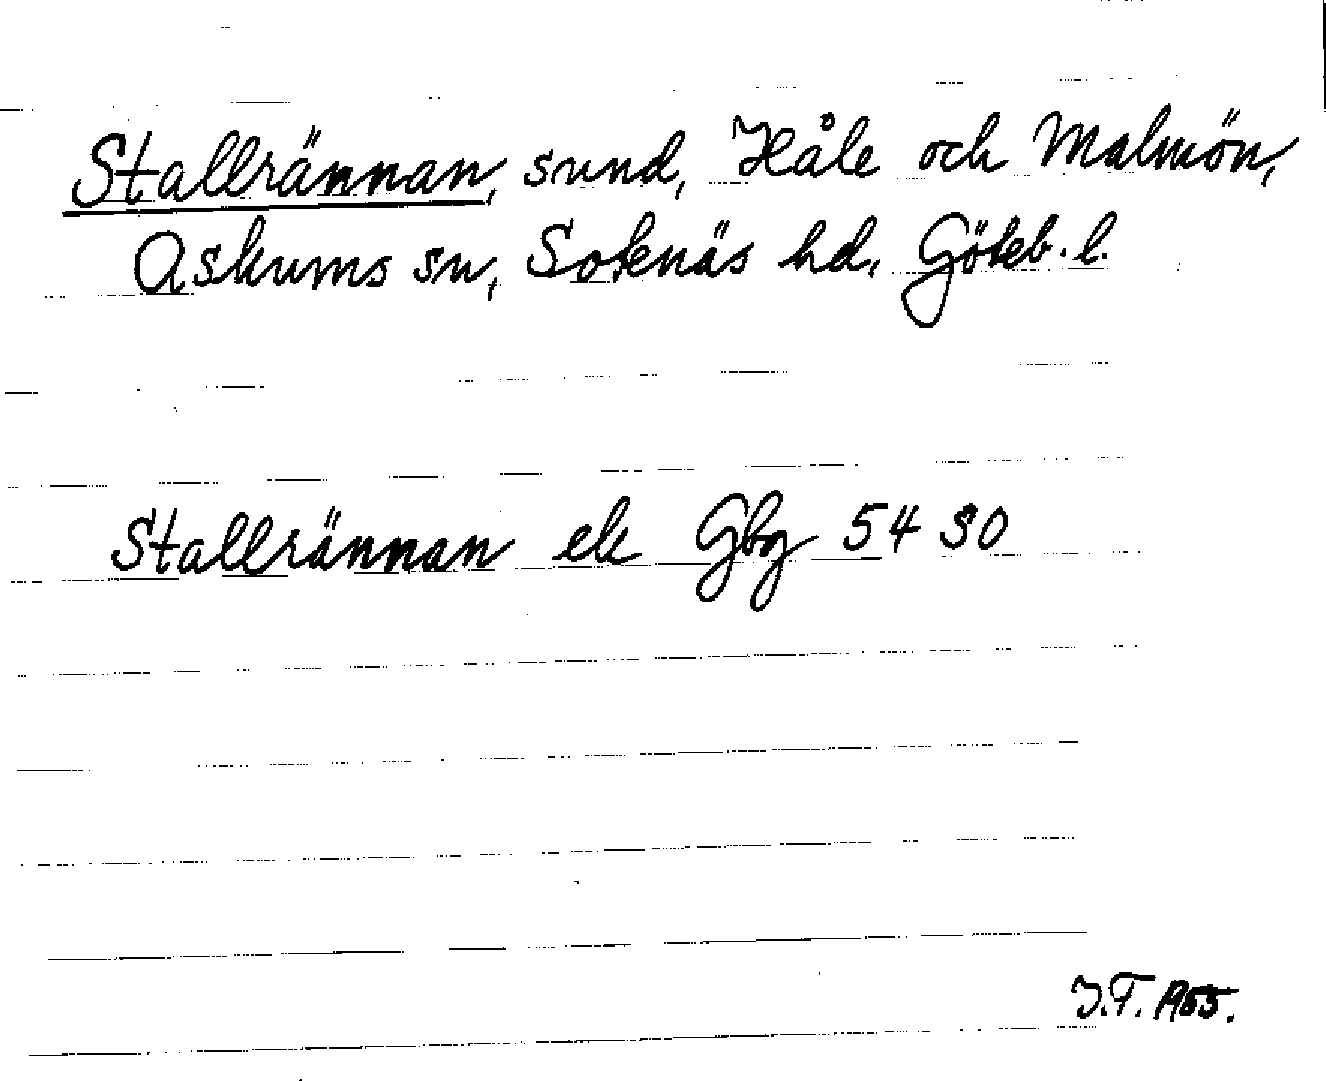 Stallrännan, sund, Håle och Malmön,
Askums sn, Sotenäs hd, Göteb. l.
Stallrännan ek Gbg 54 SO
J.T. 1955.